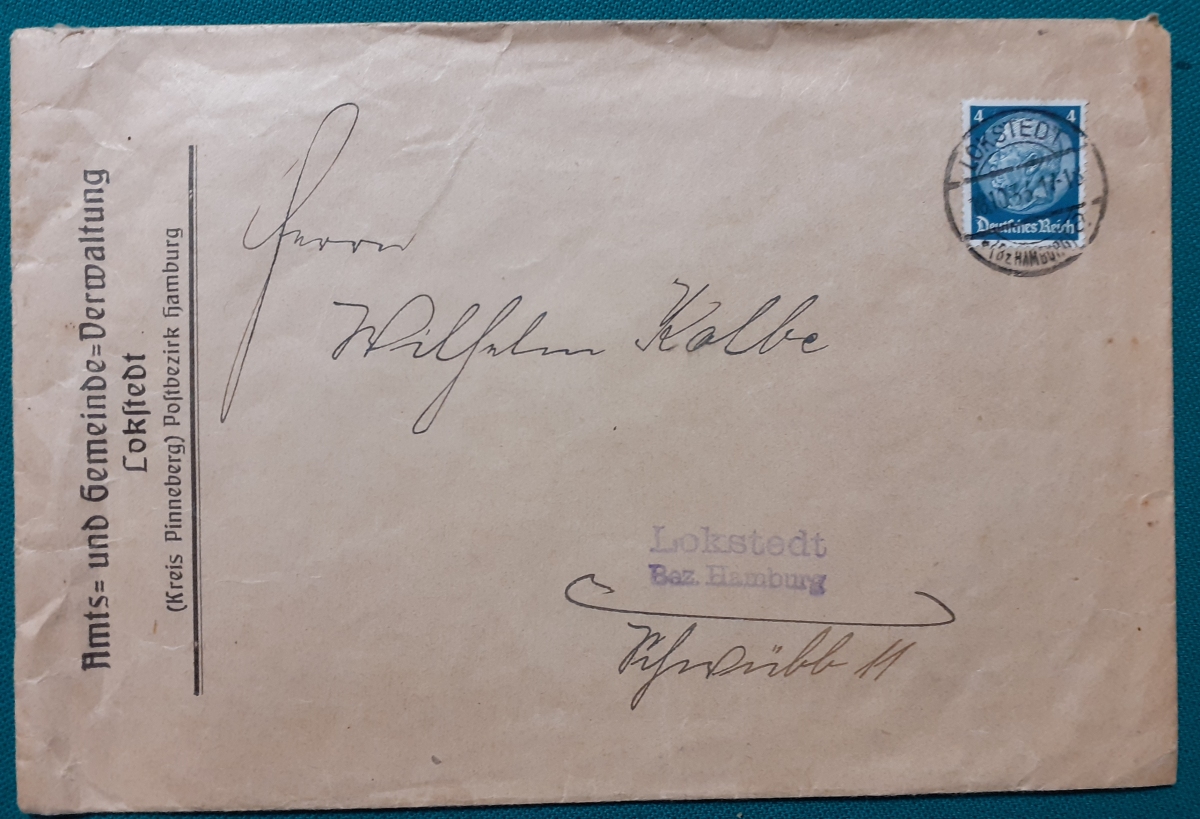 Amts= und Gemeinde=Verwaltung
Lokstedt
(Kreis Pinneberg) Postbezirk Hamburg
4 4
Deutsches Reich
LOKSTEDT
(BZ HAMBURG)
Herrn
Wilhelm Kolbe
Lokstedt
Bez. Hamburg
Schwübb 11